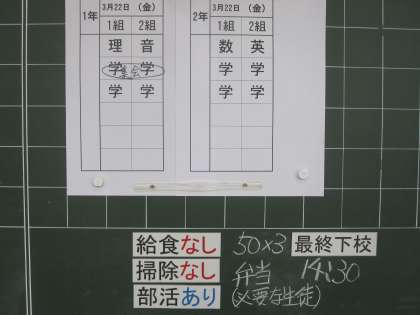 1年 3月22日 (金) 2年 3月22日 (金)
1組 2組 1組 2組
理 音 数 英
学 集会 学 学 学
学 学 学 学
給食なし 50×3 最終下校
掃除なし 弁当 14:30
部活あり (必要な生徒)